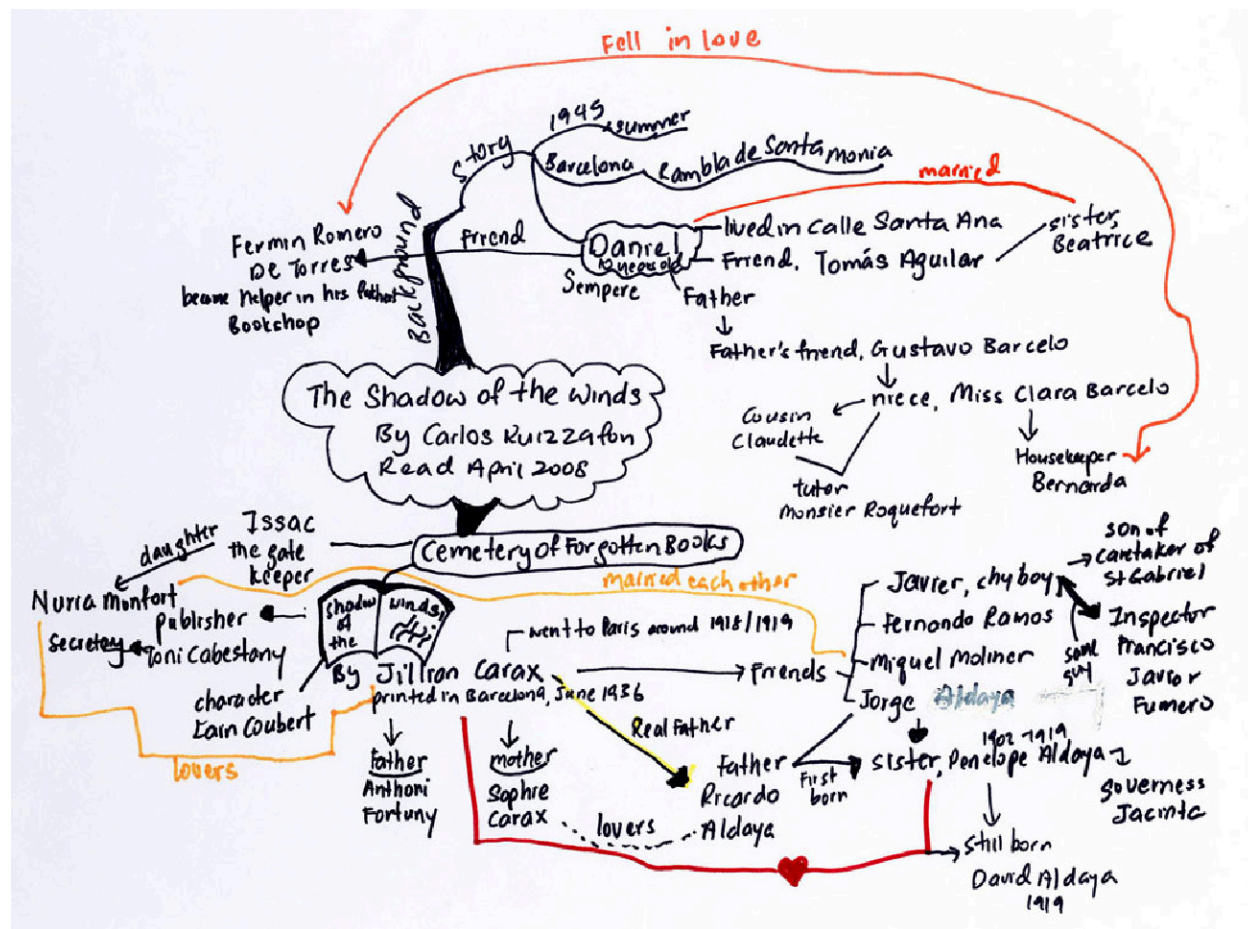 Fell in love
1945
summer
Story
Barcelona
Rambla de Santa monia
married
Background
Fermin Romero
De Torres
became helper in his father
Bookshop
Friend
Daniel
Sempere
lived in Calle Santa Ana
Friend, Tomás Aguilar
sister,
Beatrice
Father
Father's friend, Gustavo Barcelo
niece, Miss Clara Barcelo
Cousin
Claudette
tutor
Monsier Roquefort
Housekeeper
Bernarda
The Shadow of the Winds
By Carlos Ruizzafon
Read April 2008
Cemetery of Forgotten Books
Issac
the gate
keeper
daughter
Nuria Monfort
married each other
publisher
secretary
Toni Cabestany
Shadow
of
the
winds
By Jillian Carax
printed in Barcelona, June 1936
character
Lain Coubert
lovers
went to Paris around 1918/1919
Friends
Javier, chyboy
son of
caretaker of
St Gabriel
Fernando Ramos
Miquel Moliner
Jorge Aldaya
same
guy
Inspector
Francisco
Javier
Fumero
Real Father
Father
Anthoni
Fortuny
mother
Sophie
Carax
lovers
Father
Ricardo
Aldaya
First
born
1902-1919
sister, Penelope Aldaya
Governess
Jacinta
still born
David Aldaya
1919